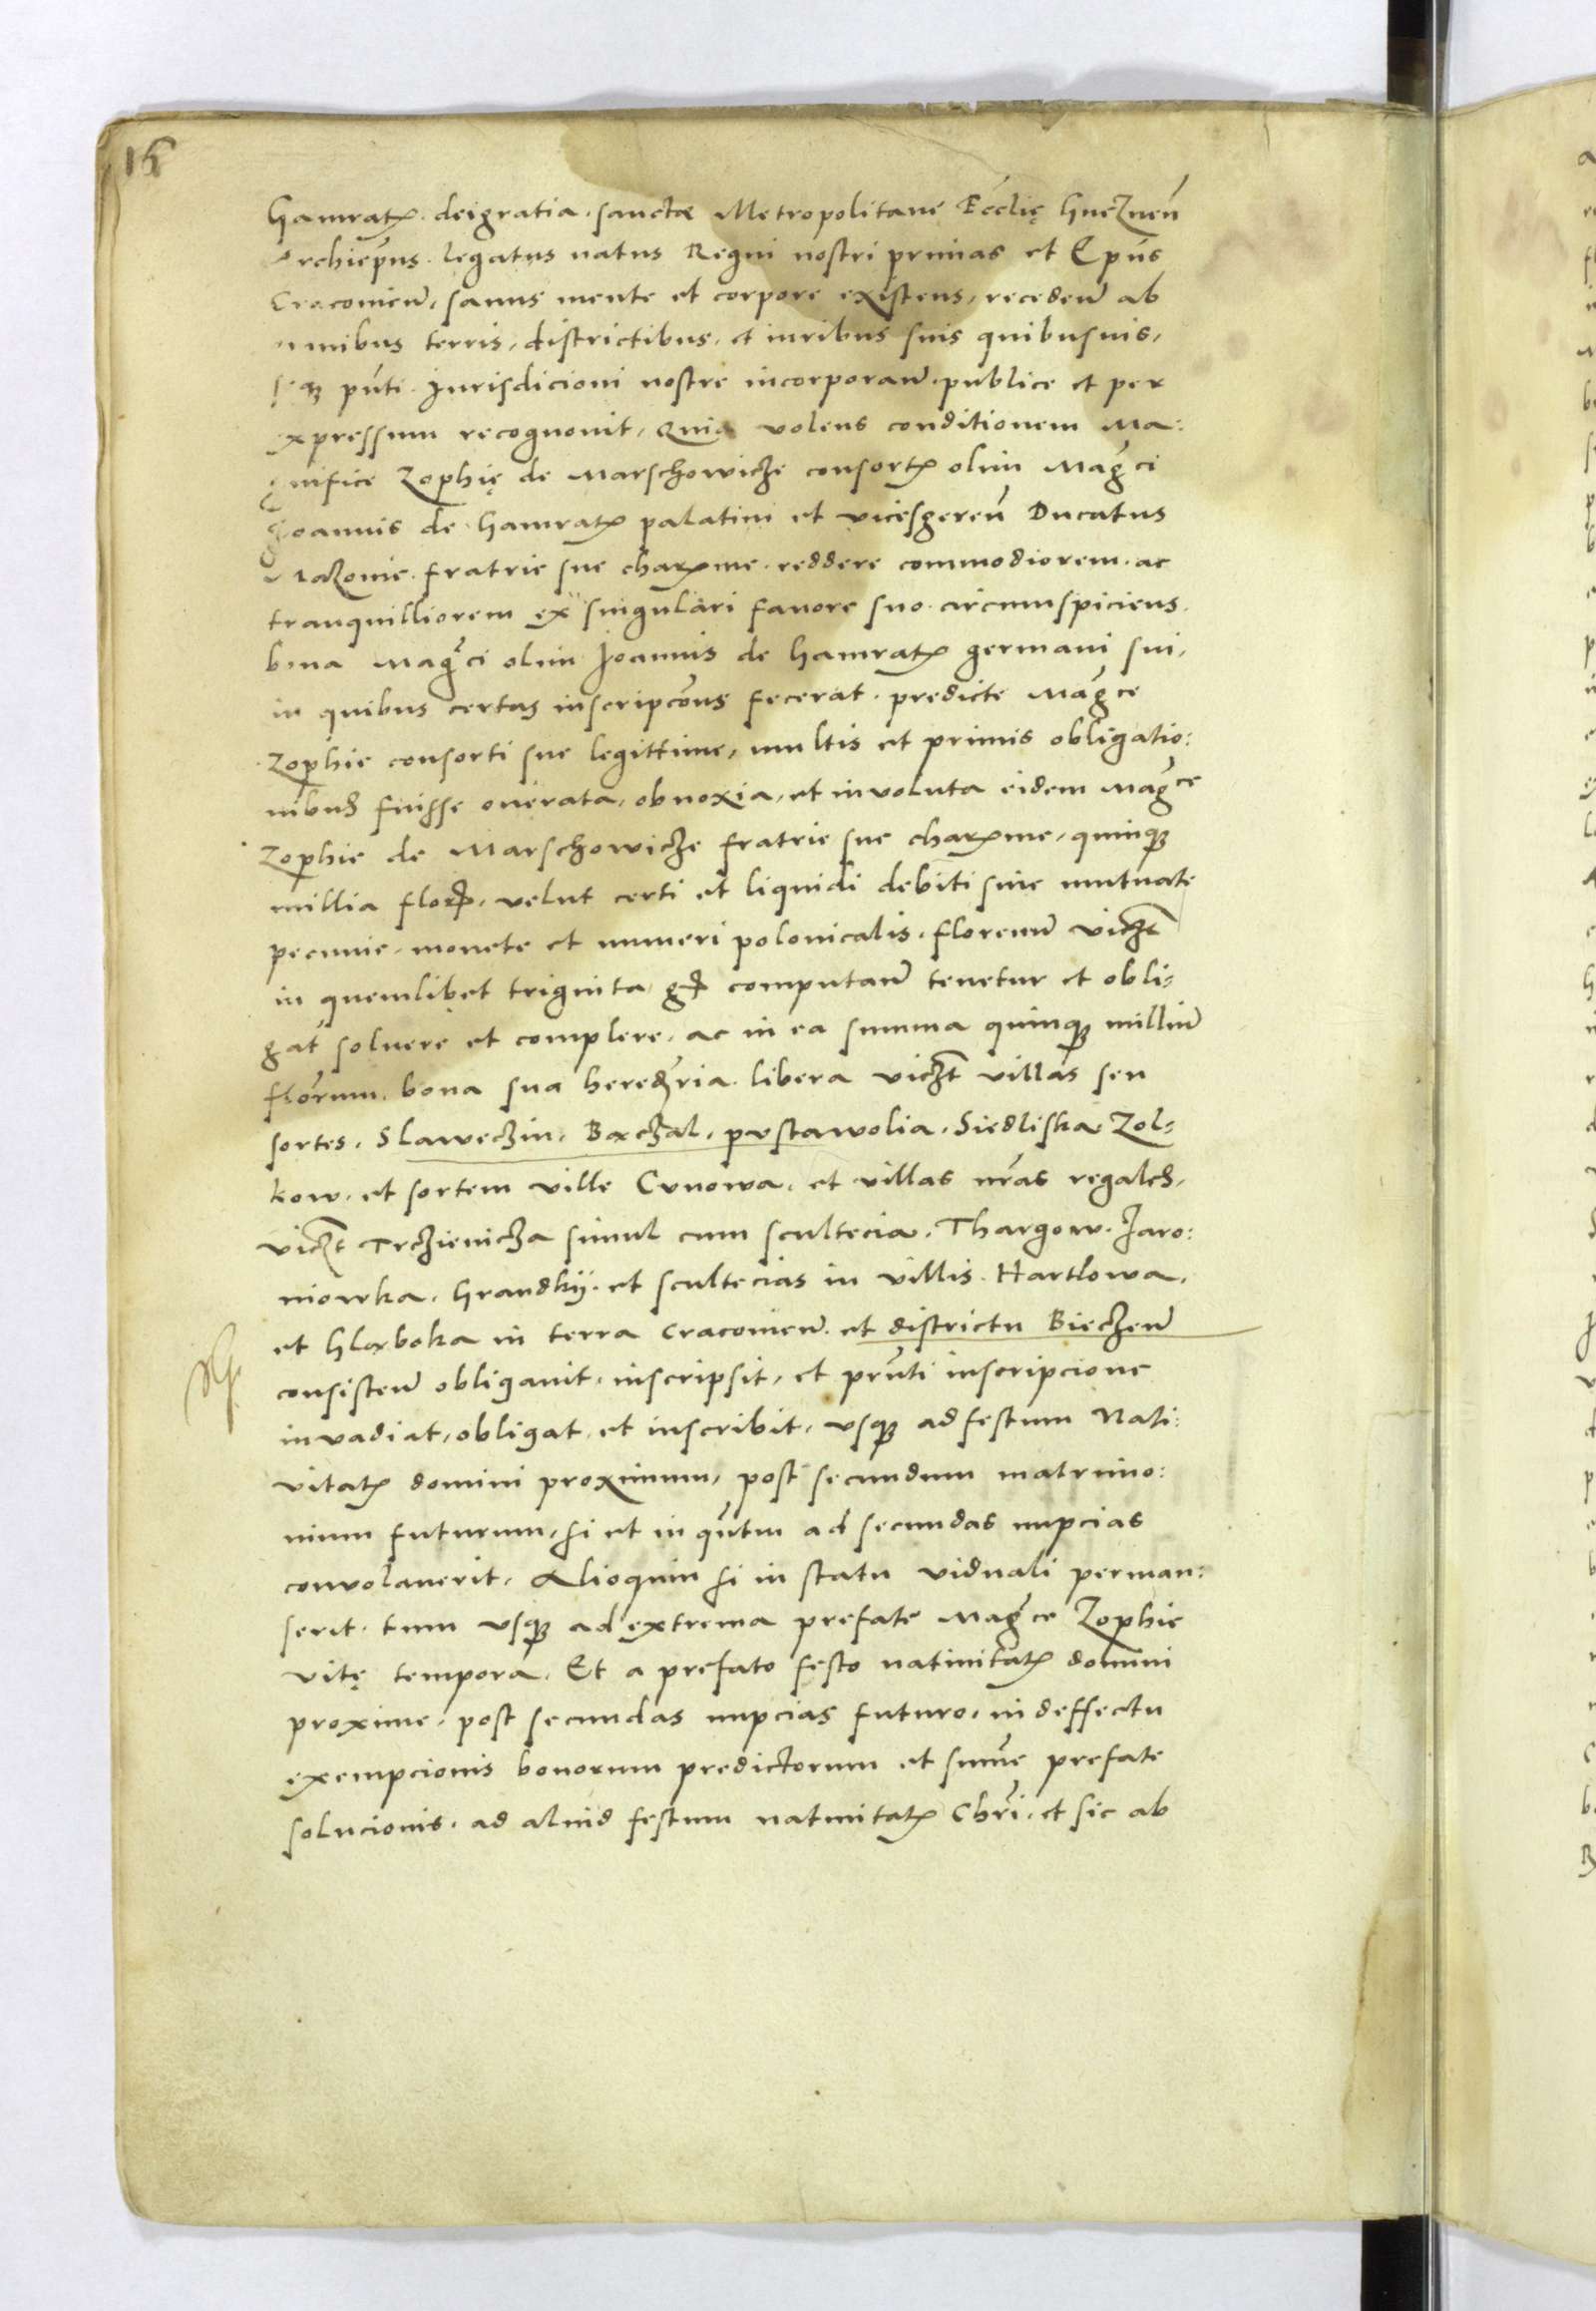 16
Hamratꝭ. deigratia. sanctæ Metropolitane Ecclię Gneznen̄
Archiep̄us. legatus natus Regni nostri primas et Ep̄us
Cracovien̄, sanus mente et corpore existens, receden̄ ab
omnibus terris, districtibus, et iuribus suis quibusuis,
seqꝫ pn̄ti Iurisdicioni nostre incorporan̄. publice et per
expressum recognouit, Quia volens conditionem Ma:
gnifice Zophię de Marschowicze consortꝭ olim Mag̃ci
Ioannis de Hamratꝭ palatini et vicesgeren̄ Ducatus
Mazouie. fratrie sue charꝭme. reddere commodiorem. ac
tranquilliorem ex singulari fauore suo. circumspiciens.
bona Mag̃ci olim Ioannis de Hamratꝭ germani sui,
in quibus certas inscripcōns fecerat. predicte Mag̃ce
Zophie consorti sue legittime, multis et primis obligatio:
nibus fuisse onerata, obnoxia, et inuoluta eidem Mag̃ce
Zophie de Marschowicze fratrie sue charꝭme, quinqꝫ
millia floꝝ, velut certi et liquidi debiti siue mutuate
pecunie. monete et numeri polonicalis. florenū viczt
in quemlibet triginta gꝝ computan̄ tenetur et obli-
gat̄ soluere et complere, ac in ea summa quinqꝫ milliū
flōrum. bona sua heređria. libera viczt villas seu
sortes. Slaweczin. Baczal. pvstawolia. Siedliska. Zol-
kow. et sortem ville Cvnowa. et villas nr̄as regales,
viczt Trczienicza simul cum scultecia. Thargow. Iaro:
niowka. Grandkij. et scultecias in villis. Hartlowa.
et Glæboka in terra Cracovien̄. et districtu Bieczen̄
consisten̄ obligauit. inscripsit, et pn̄ti inscripcione
invadiat, obligat, et inscribit, vsqꝫ ad festum Nati:
vitatꝭ domini proximum, post secundum matrimo:
nium futurum, si et in qn̄tum ad secundas nupcias
convolauerit, Alioquin si in statu viduali perman:
serit. tum vsqꝫ ad extrema prefate Mag̃ce Zophie
vitę tempora. Et a prefato festo natiuitatꝭ domini
proxime, post secundas nupcias futuro, in deffectu
exempcionis bonorum predictorum et sum̄e prefate
solucionis. ad aliud festum natiuitatꝭ Chri̅. et sic ab